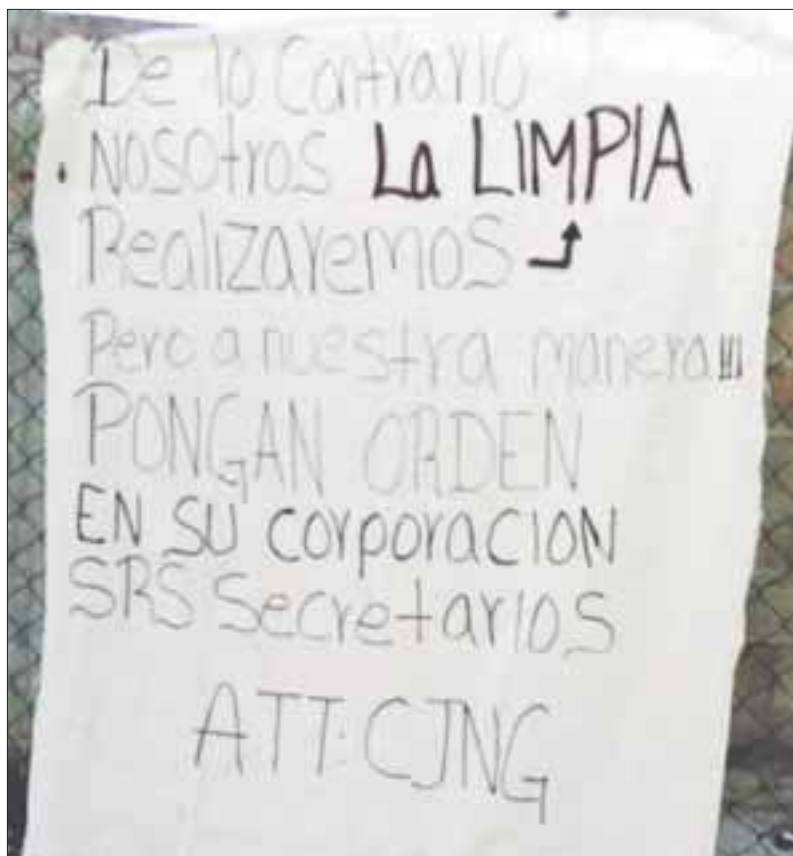 De lo Contrario
Nosotros La LIMPIA
Realizaremos
Pero a nuestra manera!!!
PONGAN ORDEN
EN SU corporacion
SRS Secretarios
ATT: CJNG